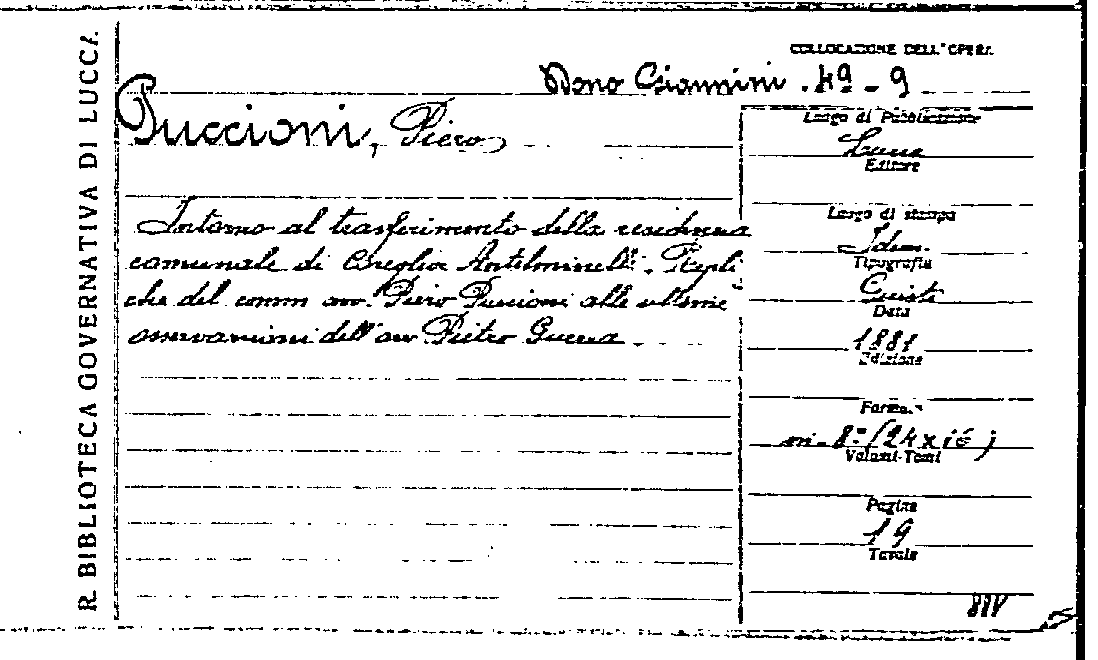 R. BIBLIOTECA GOVERNATIVA DI LUCCA
COLLOCAZIONE DELL'OPERA
Dono Giannini . 49 - 9
Puccioni, Piero
Intorno al trasferimento della residenza
comunale di Coreglia Antelminelli. Repli
che del comm avv. Piero Puccioni alle ultime
osservazioni dell'avv Pietro Guerra
Luogo di Pubblicazione
Lucca
Editore
Luogo di stampa
Idem.
Tipografia
Giusti
Data
1881
Edizione
Formato
in-8º (24x16)
Volumi-Tomi
Pagine
19
Tavole